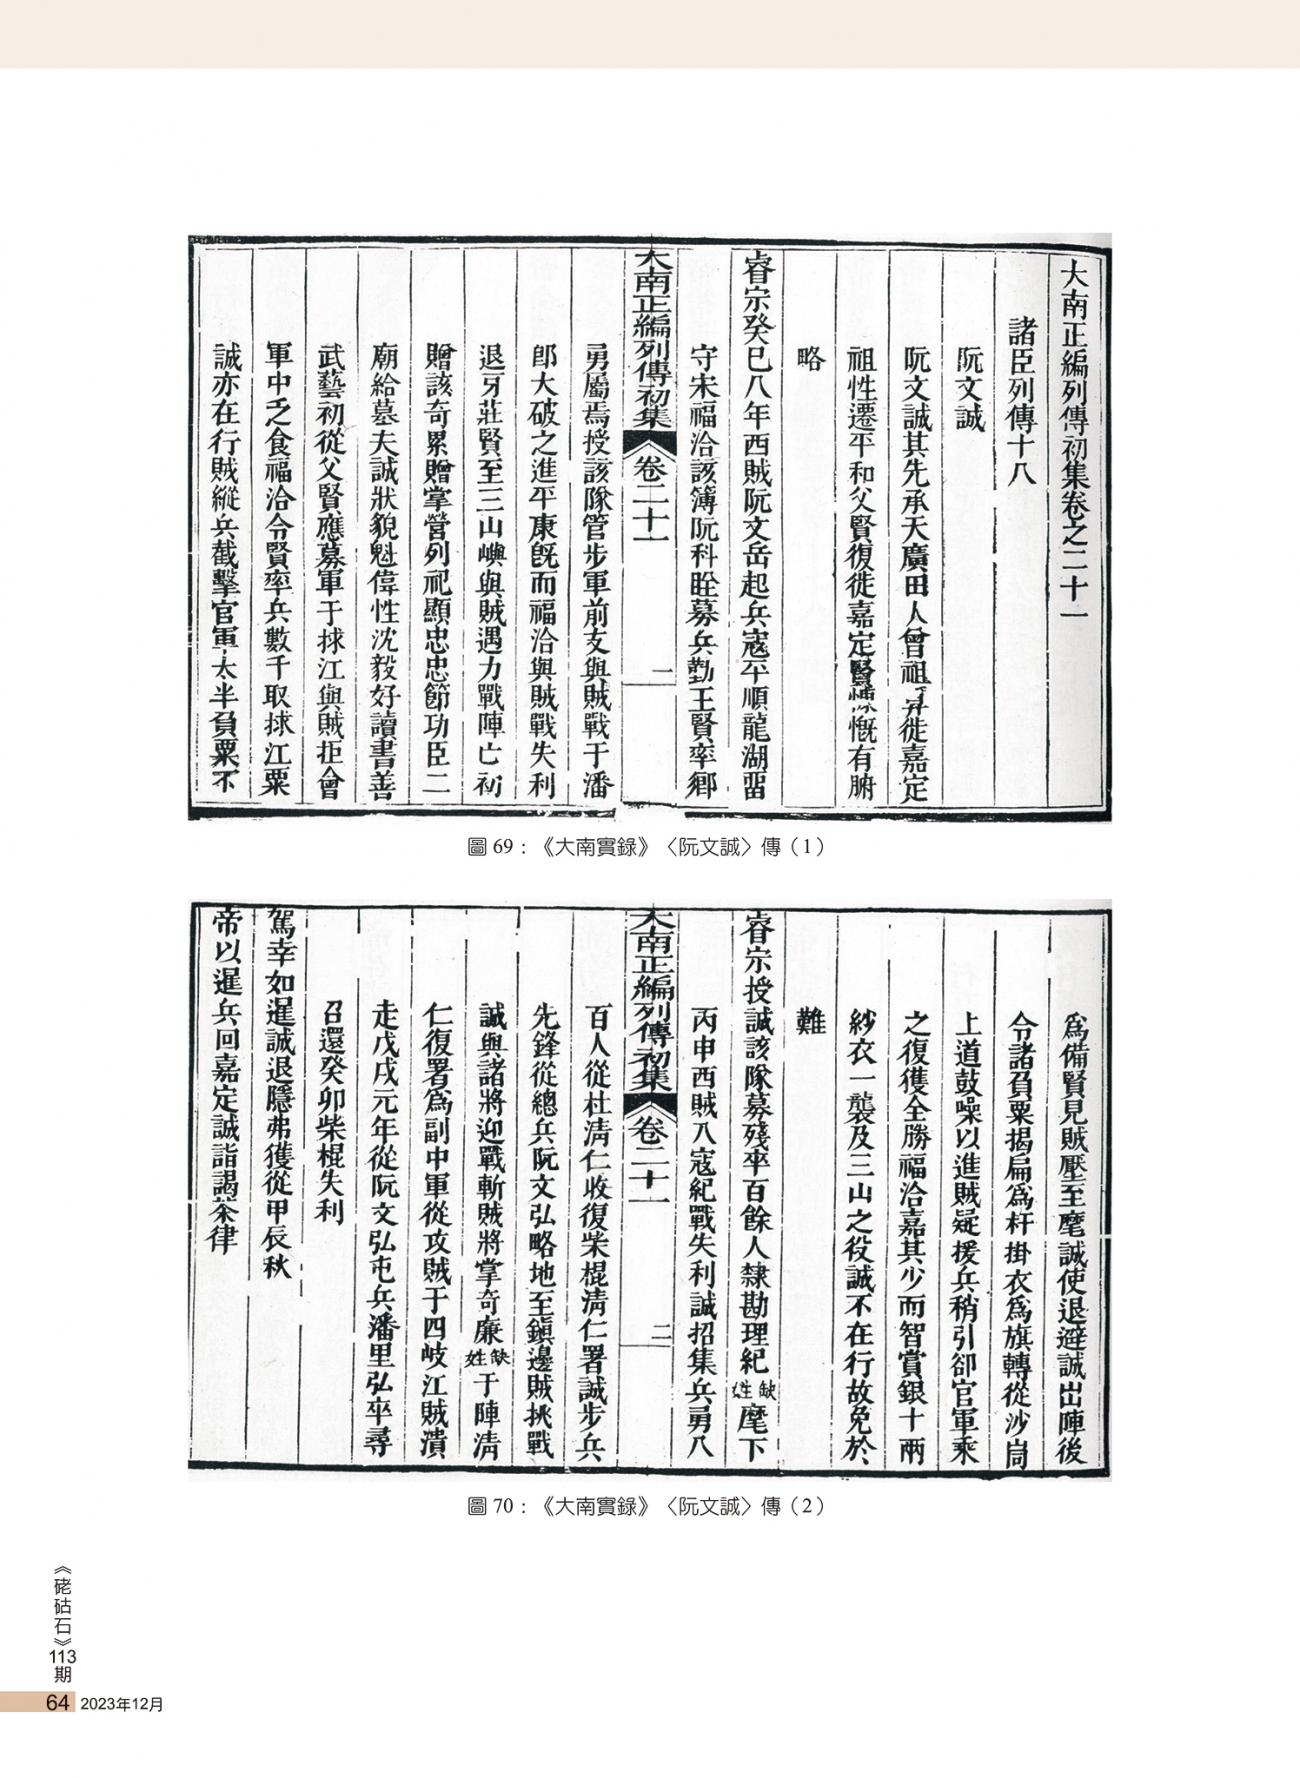 大南正編列傳初集卷之二十一
諸臣列傳十八
阮文誠
阮文誠其先承天廣田人曾祖昇徙嘉定
祖性遷平和父賢復徙嘉定賢慷慨有腑
略
睿宗癸巳八年西賊阮文岳起兵寇平順龍湖畱
守宋福洽該簿阮科眰募兵勤王賢率鄉
大南正編列傳初集 卷二十一 一
勇屬焉授該隊管步軍前支與賊戰于潘
郎大破之進平康旣而福洽與賊戰失利
退牙莊賢至三山嶼與賊遇力戰陣亡初
贈該奇累贈掌營列祀顯忠忠節功臣二
廟給墓夫誠狀貌魁偉性沈毅好讀書善
武藝初從父賢應募軍于捄江與賊拒會
軍中乏食福洽令賢率兵數千取捄江粟
誠亦在行賊縱兵截擊官軍太半負粟不
圖 69：《大南實錄》〈阮文誠〉傳（1）
爲備賢見賊壓至麾誠使退避誠出陣後
令諸負粟揭扁爲杆掛衣爲旗轉從沙崗
上道鼓噪以進賊疑援兵稍引卻官軍乘
之復獲全勝福洽嘉其少而智賞銀十兩
紗衣一襲及三山之役誠不在行故免於
難
睿宗授誠該隊募殘卒百餘人隸勘理紀缺姓麾下
丙申西賊入寇紀戰失利誠招集兵勇八
大南正編列傳初集 卷二十一 二
百人從杜淸仁收復柴棍淸仁署誠步兵
先鋒從總兵阮文弘略地至鎭邊賊挑戰
誠與諸將迎戰斬賊將掌奇廉缺姓于陣淸
仁復署爲副中軍從攻賊于四岐江賊潰
走戊戌元年從阮文弘屯兵潘里弘卒尋
召還癸卯柴棍失利
駕幸如暹誠退隱弗獲從甲辰秋
帝以暹兵回嘉定誠詣謁茶律
圖 70：《大南實錄》〈阮文誠〉傳（2）
《硓𥑮石》113期
64 2023年12月